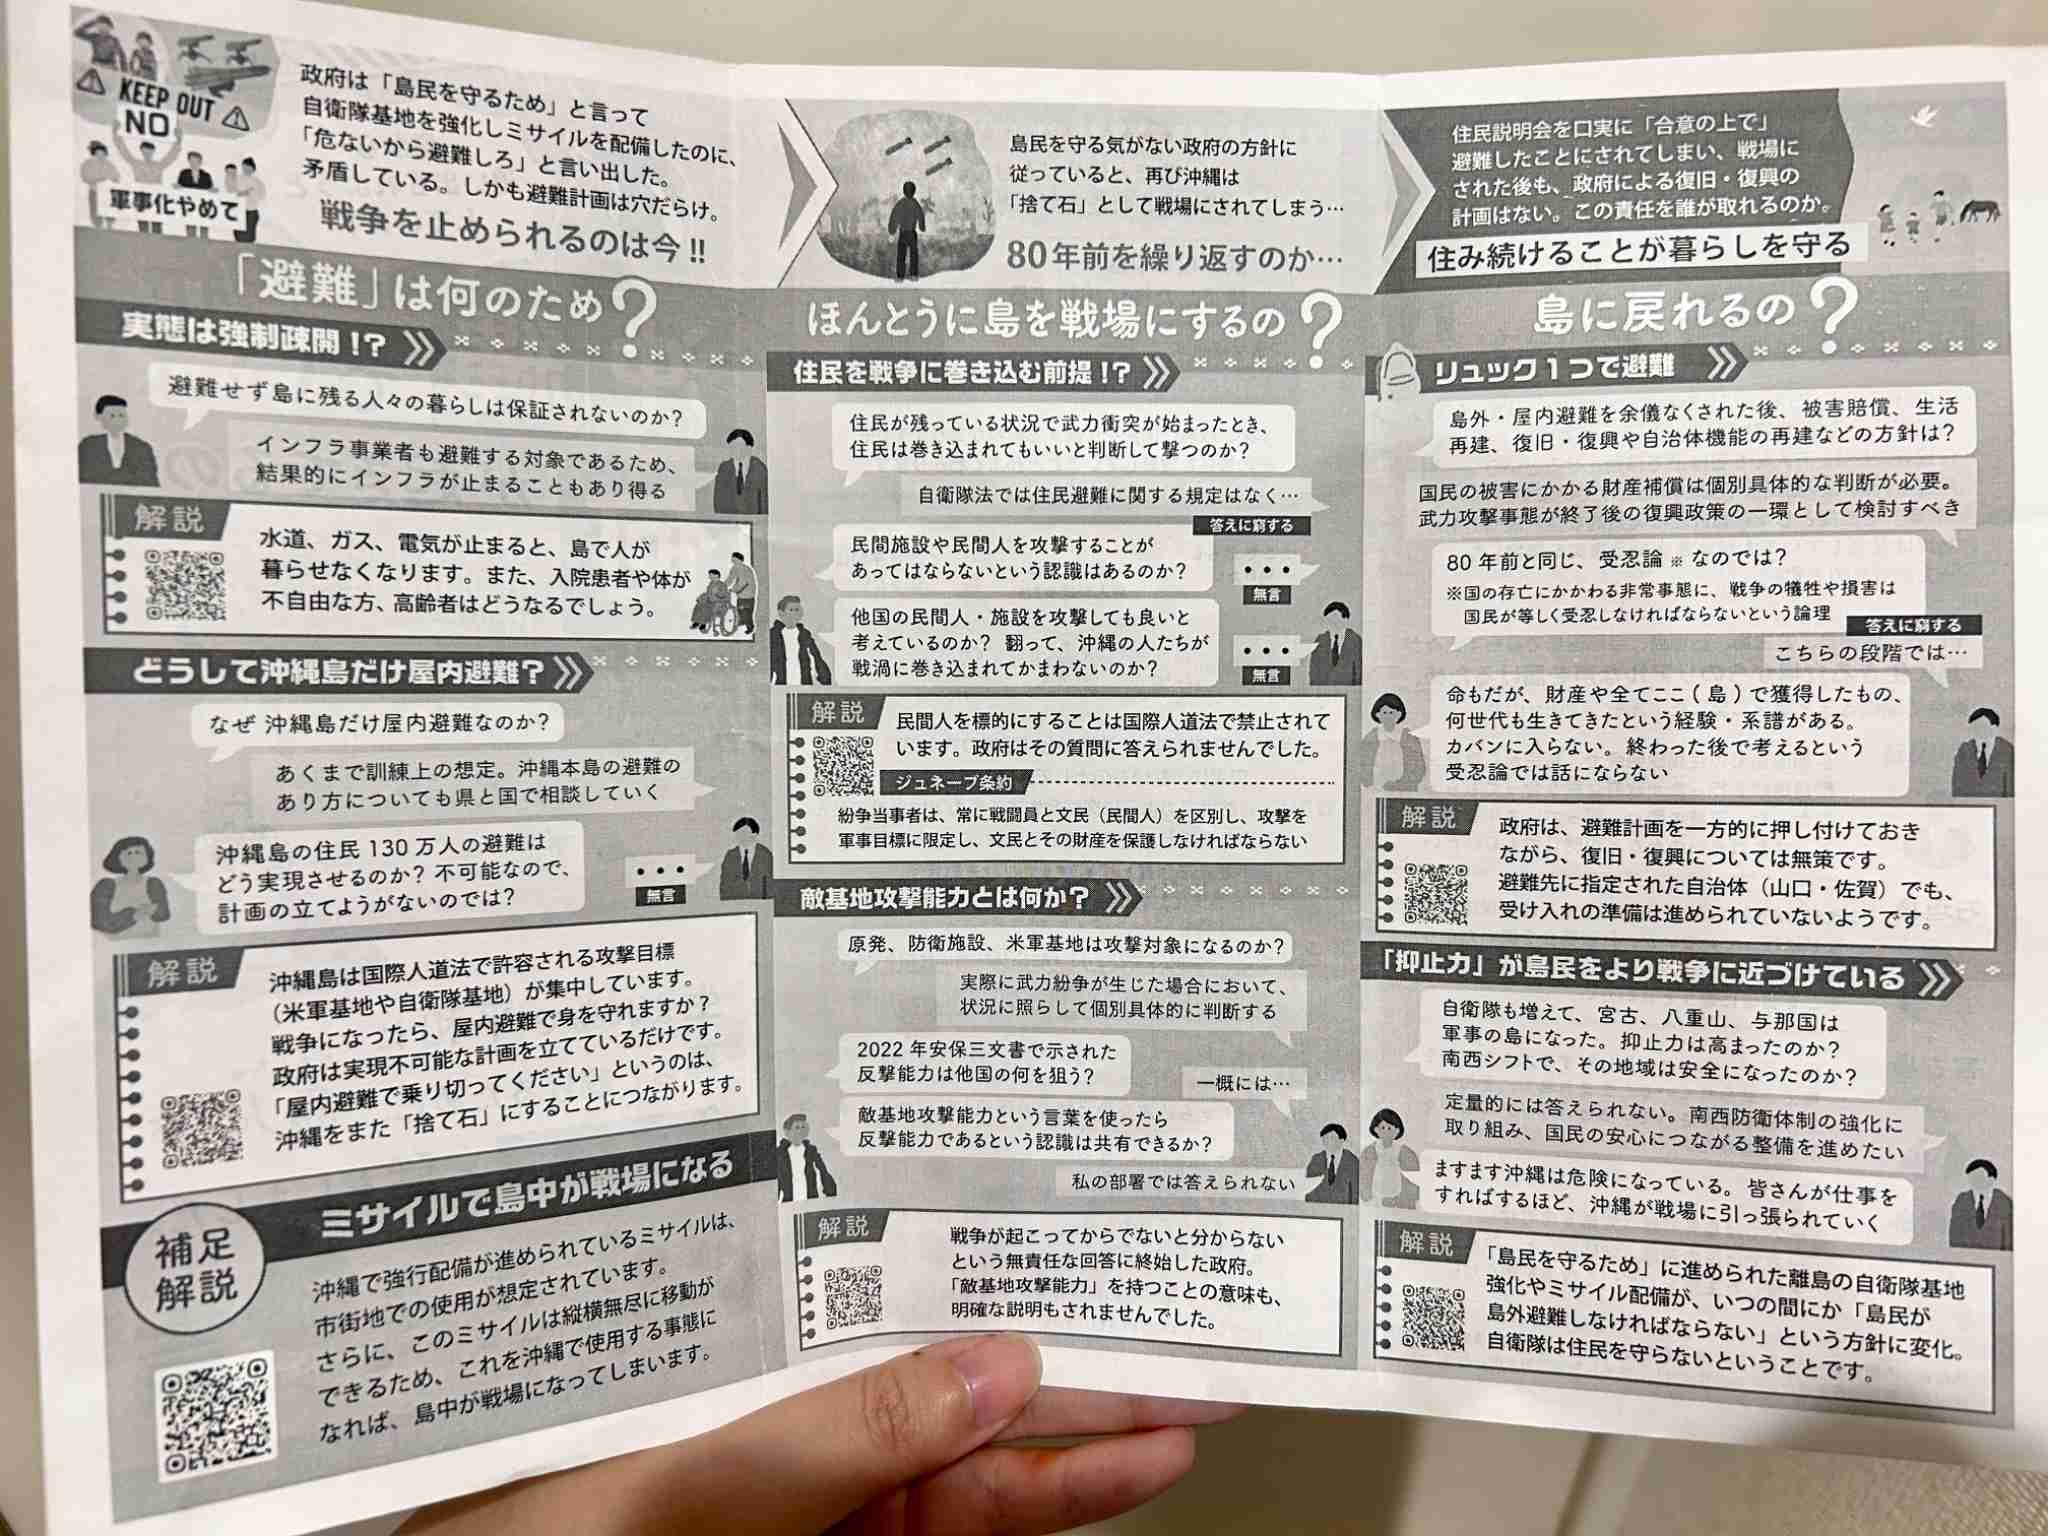 KEEP OUT
NO
軍事化やめて
政府は「島民を守るため」と言って
自衛隊基地を強化しミサイルを配備したのに、
「危ないから避難しろ」と言い出した。
矛盾している。しかも避難計画は穴だらけ。
戦争を止められるのは今!!
「避難」は何のため?
実態は強制疎開!?
避難せず島に残る人々の暮らしは保証されないのか?
インフラ事業者も避難する対象であるため、
結果的にインフラが止まることもあり得る
解説
水道、ガス、電気が止まると、島で人が
暮らせなくなります。また、入院患者や体が
不自由な方、高齢者はどうなるでしょう。
どうして沖縄島だけ屋内避難?
なぜ 沖縄島だけ屋内避難なのか?
あくまで訓練上の想定。沖縄本島の避難の
あり方についても県と国で相談していく
沖縄島の住民 130 万人の避難は
どう実現させるのか? 不可能なので、
計画の立てようがないのでは?
•••
無言
解説
沖縄島は国際人道法で許容される攻撃目標
(米軍基地や自衛隊基地)が集中しています。
戦争になったら、屋内避難で身を守れますか?
政府は実現不可能な計画を立てているだけです。
「屋内避難で乗り切ってください」というのは、
沖縄をまた「捨て石」にすることにつながります。
補足
解説
ミサイルで島中が戦場になる
沖縄で強行配備が進められているミサイルは、
市街地での使用が想定されています。
さらに、このミサイルは縦横無尽に移動が
できるため、これを沖縄で使用する事態に
なれば、島中が戦場になってしまいます。
島民を守る気がない政府の方針に
従っていると、再び沖縄は
「捨て石」として戦場にされてしまう…
80年前を繰り返すのか…
ほんとうに島を戦場にするの?
住民を戦争に巻き込む前提!?
住民が残っている状況で武力衝突が始まったとき、
住民は巻き込まれてもいいと判断して撃つのか?
自衛隊法では住民避難に関する規定はなく…
答えに窮する
民間施設や民間人を攻撃することが
あってはならないという認識はあるのか?
•••
無言
他国の民間人・施設を攻撃しても良いと
考えているのか? 翻って、沖縄の人たちが
戦渦に巻き込まれてかまわないのか?
•••
無言
解説
民間人を標的にすることは国際人道法で禁止されて
います。政府はその質問に答えられませんでした。
ジュネーブ条約
紛争当事者は、常に戦闘員と文民(民間人)を区別し、攻撃を
軍事目標に限定し、文民とその財産を保護しなければならない
敵基地攻撃能力とは何か?
原発、防衛施設、米軍基地は攻撃対象になるのか?
実際に武力紛争が生じた場合において、
状況に照らして個別具体的に判断する
2022 年安保三文書で示された
反撃能力は他国の何を狙う?
一概には…
敵基地攻撃能力という言葉を使ったら
反撃能力であるという認識は共有できるか?
私の部署では答えられない
解説
戦争が起こってからでないと分からない
という無責任な回答に終始した政府。
「敵基地攻撃能力」を持つことの意味も、
明確な説明もされませんでした。
住民説明会を口実に「合意の上で」
避難したことにされてしまい、戦場に
された後も、政府による復旧・復興の
計画はない。この責任を誰が取れるのか。
住み続けることが暮らしを守る
島に戻れるの?
リュック1つで避難
島外・屋内避難を余儀なくされた後、被害賠償、生活
再建、復旧・復興や自治体機能の再建などの方針は?
国民の被害にかかる財産補償は個別具体的な判断が必要。
武力攻撃事態が終了後の復興政策の一環として検討すべき
80 年前と同じ、受忍論 ※ なのでは?
※国の存亡にかかわる非常事態に、戦争の犠牲や損害は
国民が等しく受忍しなければならないという論理
答えに窮する
こちらの段階では…
命もだが、財産や全てここ(島)で獲得したもの、
何世代も生きてきたという経験・系譜がある。
カバンに入らない。終わった後で考えるという
受忍論では話にならない
解説
政府は、避難計画を一方的に押し付けておき
ながら、復旧・復興については無策です。
避難先に指定された自治体(山口・佐賀)でも、
受け入れの準備は進められていないようです。
「抑止力」が島民をより戦争に近づけている
自衛隊も増えて、宮古、八重山、与那国は
軍事の島になった。抑止力は高まったのか?
南西シフトで、その地域は安全になったのか?
定量的には答えられない。南西防衛体制の強化に
取り組み、国民の安心につながる整備を進めたい
ますます沖縄は危険になっている。皆さんが仕事を
すればするほど、沖縄が戦場に引っ張られていく
解説
「島民を守るため」に進められた離島の自衛隊基地
強化やミサイル配備が、いつの間にか「島民が
島外避難しなければならない」という方針に変化。
自衛隊は住民を守らないということです。